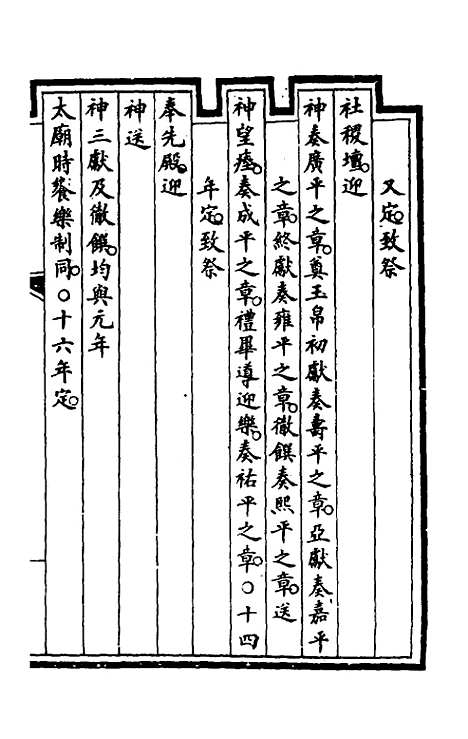 又定致祭
社稷壇迎
神奏廣平之章奠玉帛初獻奏壽平之章亞獻奏嘉平
之章終獻奏雍平之章徹饌奏熙平之章送
神望瘞奏成平之章禮畢導迎樂奏祐平之章○十四
年定致祭
奉先殿迎
神送
神三獻及徹饌均與元年
太廟時饗樂制同○十六年定